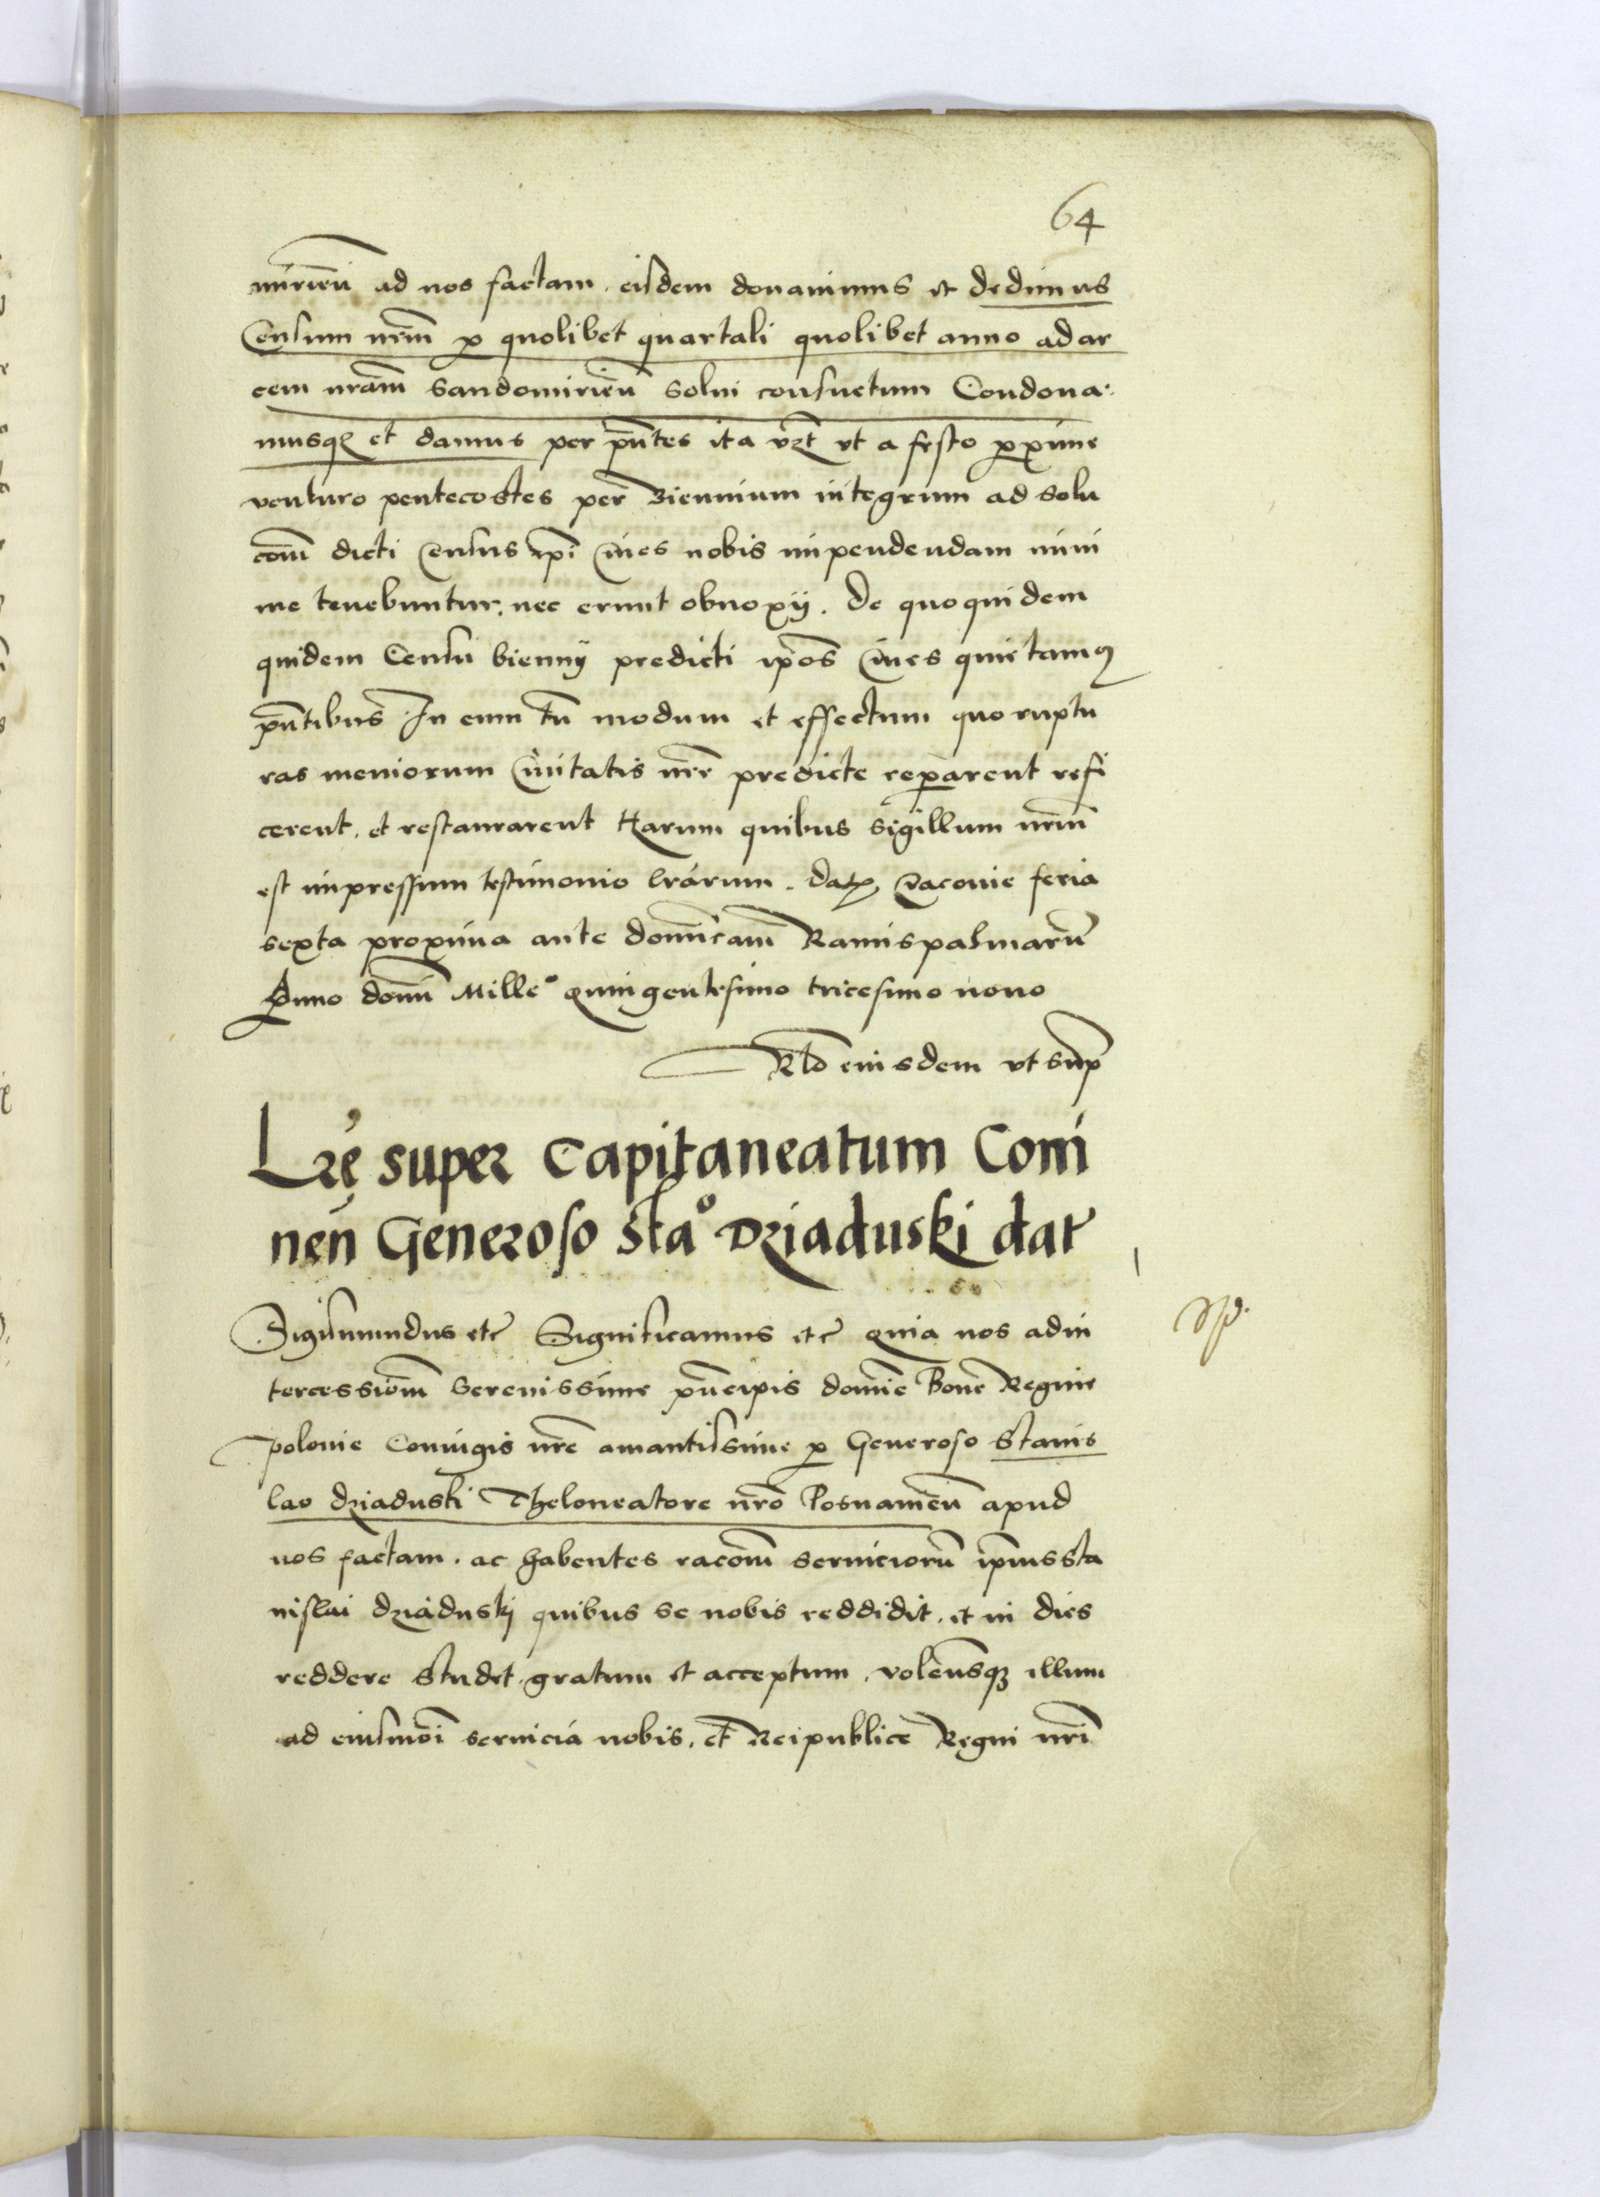 64
mirień ad nos factam. eisdem donavimus et dedimus
Censum nrm̄ p quolibet quartali quolibet anno ad ar
cem nrām Sandomirień solui consuetum Condona
musqꝫ et damus per pn̄tes ita vꝫt vt a festo proxime
venturo pentecostes per Biennium integrum ad solu
com̄ dicti Census ipī Ciues nobis impendendam mini
me tenebuntur. nec erunt obnoxij. De quoquidem
quidem Censu biennij predicti ipōs Ciues quietamꝯ
pn̄tibus In eum tn̄ modum et effectum quo ruptu
ras meniorum Ciuitatis nrē predicte reparent refi
cerent. et restaurarent Harum quibus sigillum nrm̄
est impressum testimonio lrārum. Dat Cracouie feria
sexta proxima ante domīcam̄ Ramispalmarū
Anno domī Milleº Quingentesimo tricesimo nono
Rlō eiusdem vt supᷓ
Lrę super Capitaneatum Coni
neń Generoso Staº Dziaduski dat
Sigismundus etc Significamus etc quia nos ad in
tercessiom̄ Serenissime pn̄cipis domīe Bone Regine
polonie Coniugis nrē amantissime p Generoso Stanis
lao dziaduski Theloneatore nrō Posnanień apud
nos factam. ac habentes racom̄ seruiciorū ipīus Sta
nislai dziaduskj quibus se nobis reddidit. et in dies
reddere studet. gratum et acceptum. volensqꝫ illum
ad eiusmoī seruicia nobis. et Reipublice Regni nrī